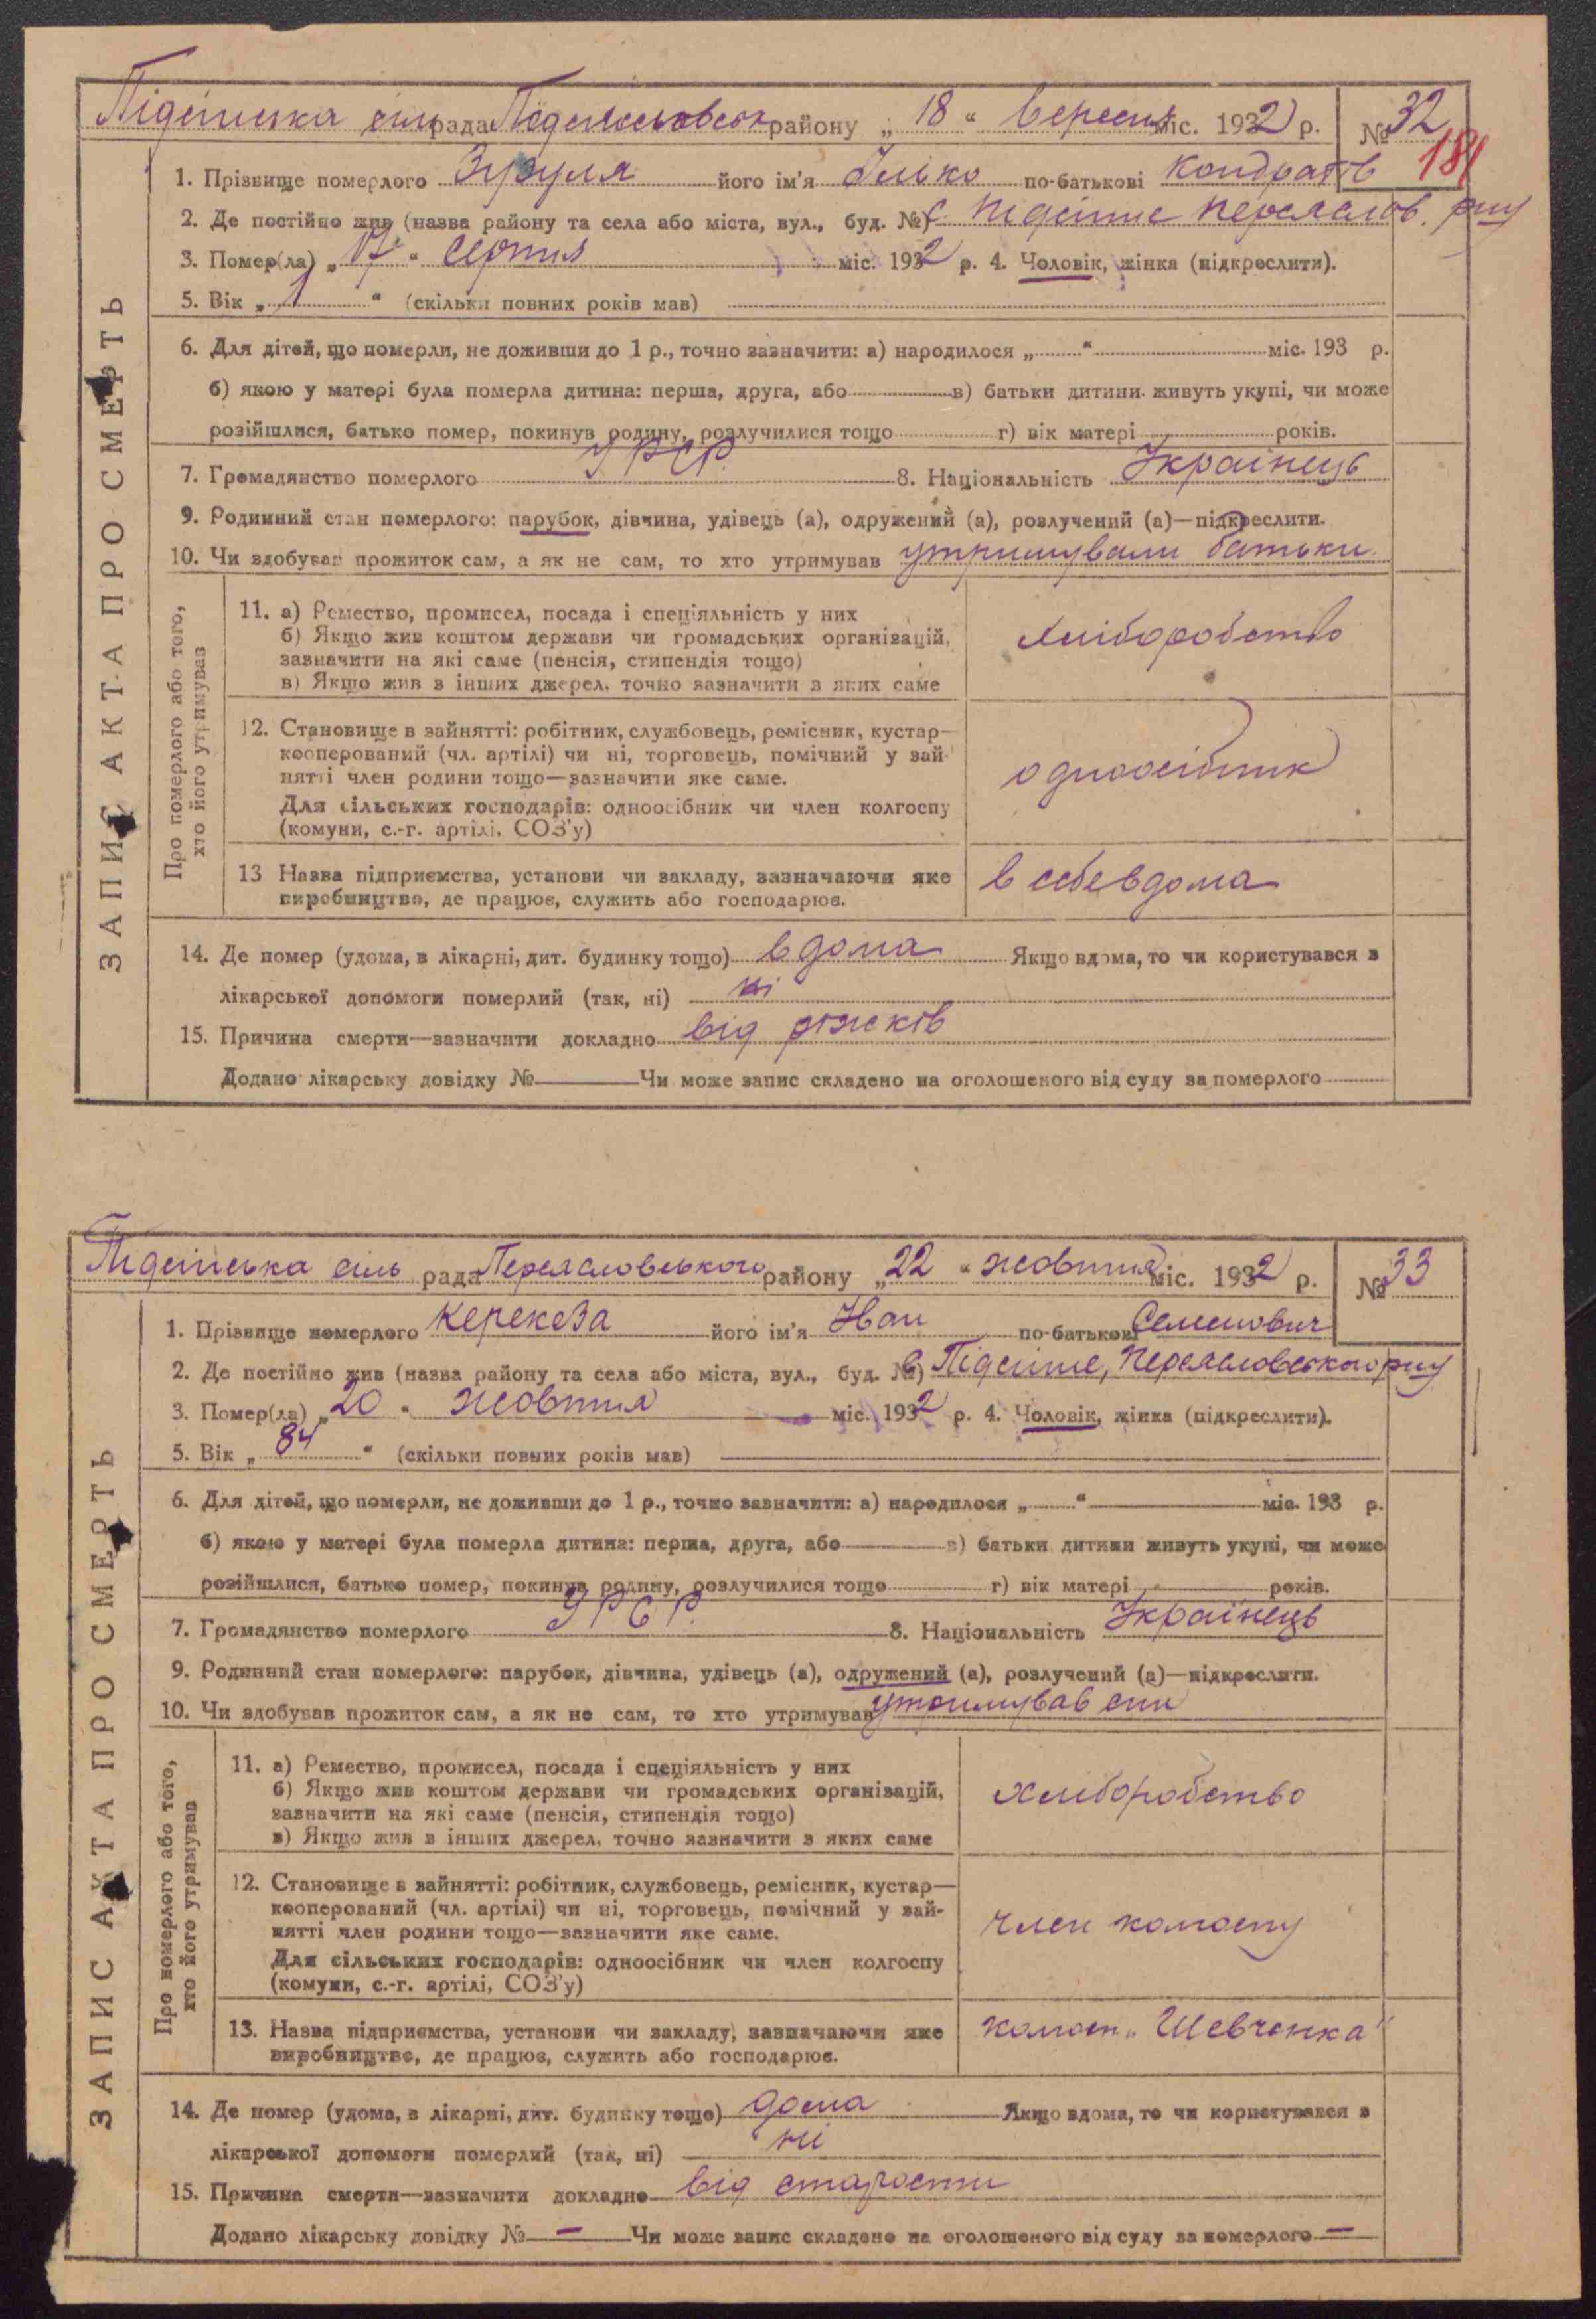 Підсінська сіль рада району „ 18 “ вересня міс. 1932 р. № 32
181
1. Прізвище померлого Зузуля його ім'я Ілько по-батькові Кондратів
2. Де постійно жив (назва району та села або міста, вул., буд. №) с. Підсінне Переяслов. р-ну
3. Помер(ла) „ 17 “ серпня міс. 1932 р. 4. Чоловік, жінка (підкреслити).
5. Вік „ 1 “ (скільки повних років мав)
6. Для дітей, що померли, не доживши до 1 р., точно зазначити: а) народилося „ “ міс. 193 р.
б) якою у матері була померла дитина: перша, друга, або в) батьки дитини живуть укупі, чи може
розійшлися, батько помер, покинув родину, розлучилися тощо г) вік матері років.
7. Громадянство померлого УРСР. 8. Національність Українець
9. Родинний стан померлого: парубок, дівчина, удівець (а), одружений (а), розлучений (а)—підкреслити.
10. Чи здобував прожиток сам, а як не сам, то хто утримував утримували батьки.
ЗАПИС АКТА ПРО СМЕРТЬ
Про померлого або того,
хто його утримував
11. а) Ремество, промисел, посада і спеціяльність у них
б) Якщо жив коштом держави чи громадських організацій,
зазначити на які саме (пенсія, стипендія тощо)
в) Якщо жив з інших джерел, точно зазначити з яких саме
хліборобство
12. Становище в зайнятті: робітник, службовець, ремісник, кустар—
кооперований (чл. артілі) чи ні, торговець, помічний у зай-
нятті член родини тощо—зазначити яке саме.
Для сільських господарів: одноосібник чи член колгоспу
(комуни, с.-г. артілі, СОЗ'у)
одноосібник
13 Назва підприємства, установи чи закладу, зазначаючи яке
виробництво, де працює, служить або господарює.
в себе вдома
14. Де помер (удома, в лікарні, дит. будинку тощо) вдома Якщо вдома, то чи користувався з
лікарської допомоги померлий (так, ні) ні
15. Причина смерти—зазначити докладно від ріжків
Додано лікарську довідку № Чи може запис складено на оголошеного від суду за померлого
Підсінська сіль рада Переясловського району „ 22 “ жовтня міс. 1932 р. № 33
1. Прізвище померлого Керекеза його ім'я Іван по-батькові Семенович
2. Де постійно жив (назва району та села або міста, вул., буд. №) с Підсінне, Переясловського р-ну
3. Помер(ла) „ 20 “ жовтня міс. 1932 р. 4. Чоловік, жінка (підкреслити).
5. Вік „ 84 “ (скільки повних років мав)
6. Для дітей, що померли, не доживши до 1 р., точно зазначити: а) народилося „ “ міс. 193 р.
б) якою у матері була померла дитина: перша, друга, або в) батьки дитини живуть укупі, чи може
розійшлися, батько помер, покинув родину, розлучилися тощо г) вік матері років.
7. Громадянство померлого УРСР. 8. Національність Українець
9. Родинний стан померлого: парубок, дівчина, удівець (а), одружений (а), розлучений (а)—підкреслити.
10. Чи здобував прожиток сам, а як не сам, то хто утримував утримував син
ЗАПИС АКТА ПРО СМЕРТЬ
Про померлого або того,
хто його утримував
11. а) Ремество, промисел, посада і спеціяльність у них
б) Якщо жив коштом держави чи громадських організацій,
зазначити на які саме (пенсія, стипендія тощо)
в) Якщо жив з інших джерел, точно зазначити з яких саме
хліборобство
12. Становище в зайнятті: робітник, службовець, ремісник, кустар—
кооперований (чл. артілі) чи ні, торговець, помічний у зай-
нятті член родини тощо—зазначити яке саме.
Для сільських господарів: одноосібник чи член колгоспу
(комуни, с.-г. артілі, СОЗ'у)
член колгоспу
13. Назва підприємства, установи чи закладу, зазначаючи яке
виробництво, де працює, служить або господарює.
колгосп „Шевченка“
14. Де помер (удома, в лікарні, дит. будинку тощо) дома Якщо вдома, то чи користувався з
лікарської допомоги померлий (так, ні) ні
15. Причина смерти—зазначити докладно від старости
Додано лікарську довідку № — Чи може запис складено на оголошеного від суду за померлого —